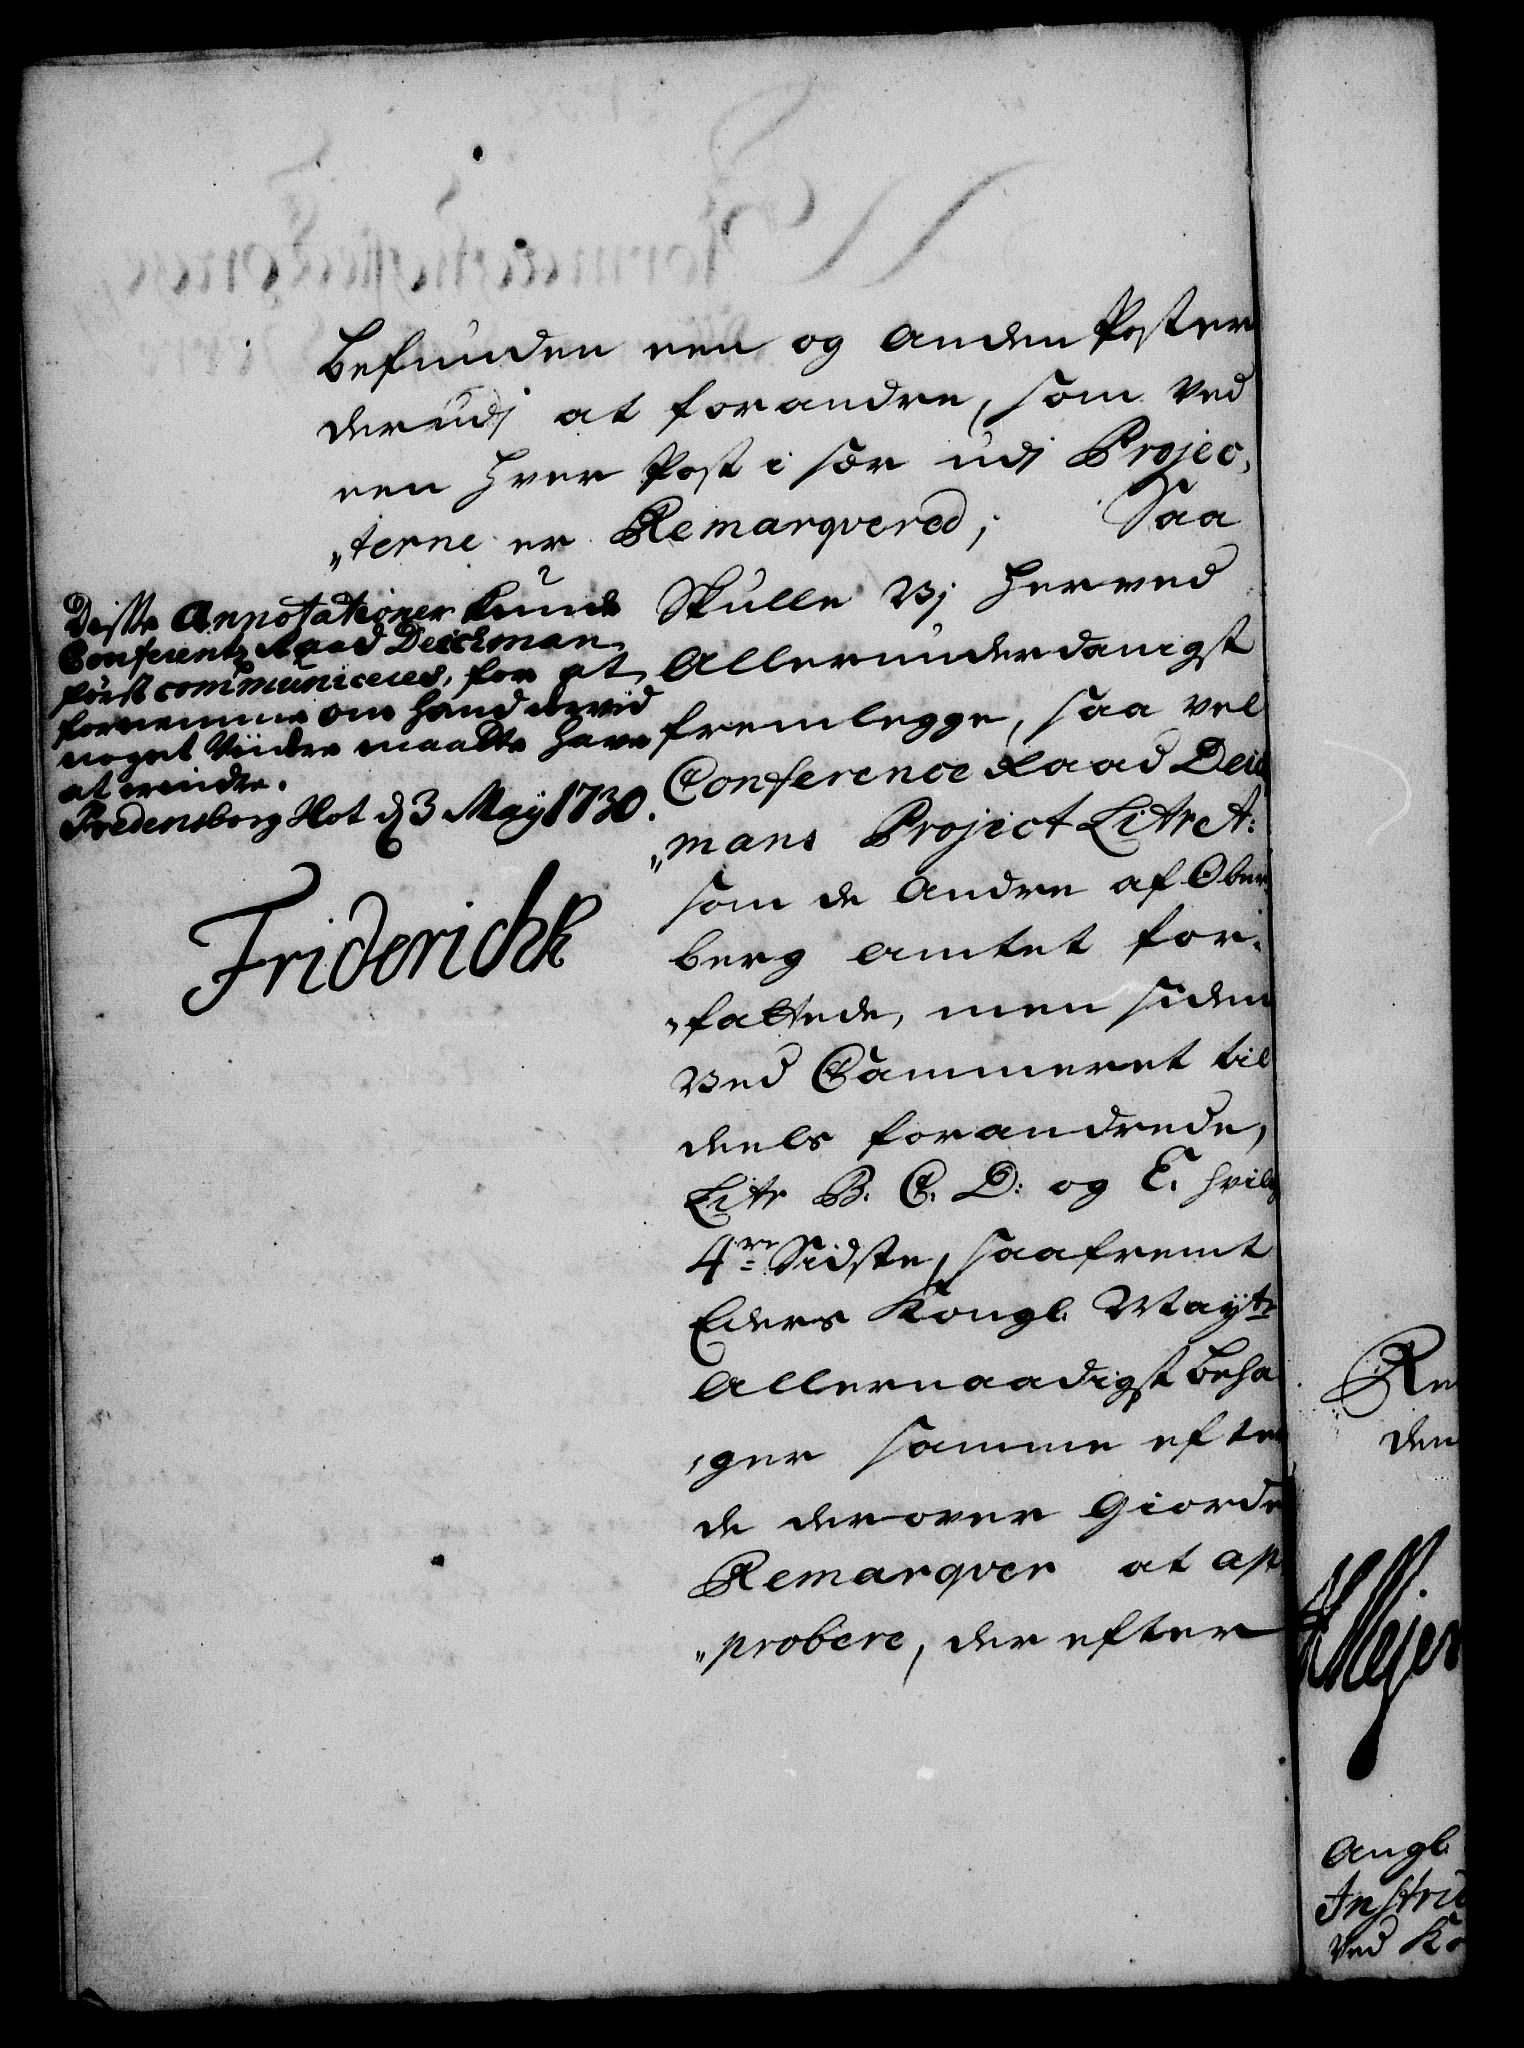 befunden een og anden Poster
derudj at forandre, som ved
een hver Post i sær udj Projec,
„terne er Remarqvered; Saa
Skulle Vj herved
Allerunderdanigst
fremlegge, saa vel
Conference Raad Deich
„mans Project Litr A:
som de andre af Ober,
berg amtet for,
„fattede, men siden
Ved Cammeret til
deels forandrede,
Litr B. C. D: og E. hvilke
4re Sidste, saafremt
Eders Kongl. Mayts
Allernaadigst beha
„ger samme efter
de derover giorde
Remarqver at ap
„probere, der efter
Disse Annotationer kunde
Conferentz Raad Deichman
først communiceres, for at
fornemme om hand derved
noget Viidre maatte have
at erindre.
Fredensborg Slot d 3 May 1730.
Friderich R
Re
den
Meyer
Angl.
Instru
Ved Ko